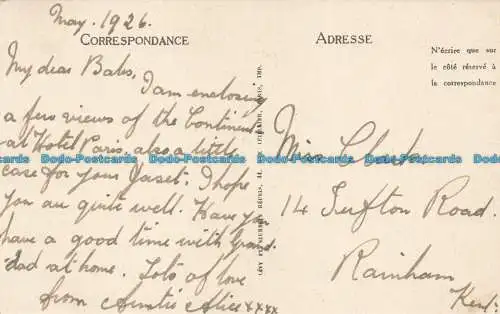 May. 1926.
CORRESPONDANCE
My dear Babs,
I am enclosing
a few views of the Continent
at Hotel Paris, also a little
case for your . I hope
you are quite well. Have you
have a good time with Grand
dad at home. Lots of love
from Auntie Alice xxxx
LÉVY ET NEURDEIN RÉUNIS, 44, PARIS, IMP.
ADRESSE
N'écrire que sur
le côté réservé à
la correspondance
Miss
14 Road.
Rainham
Kent.
Dodo-Postcards Dodo-Postcards Dodo-Postcards Dodo-Postcards Dodo-Postcards Dodo-Postcards